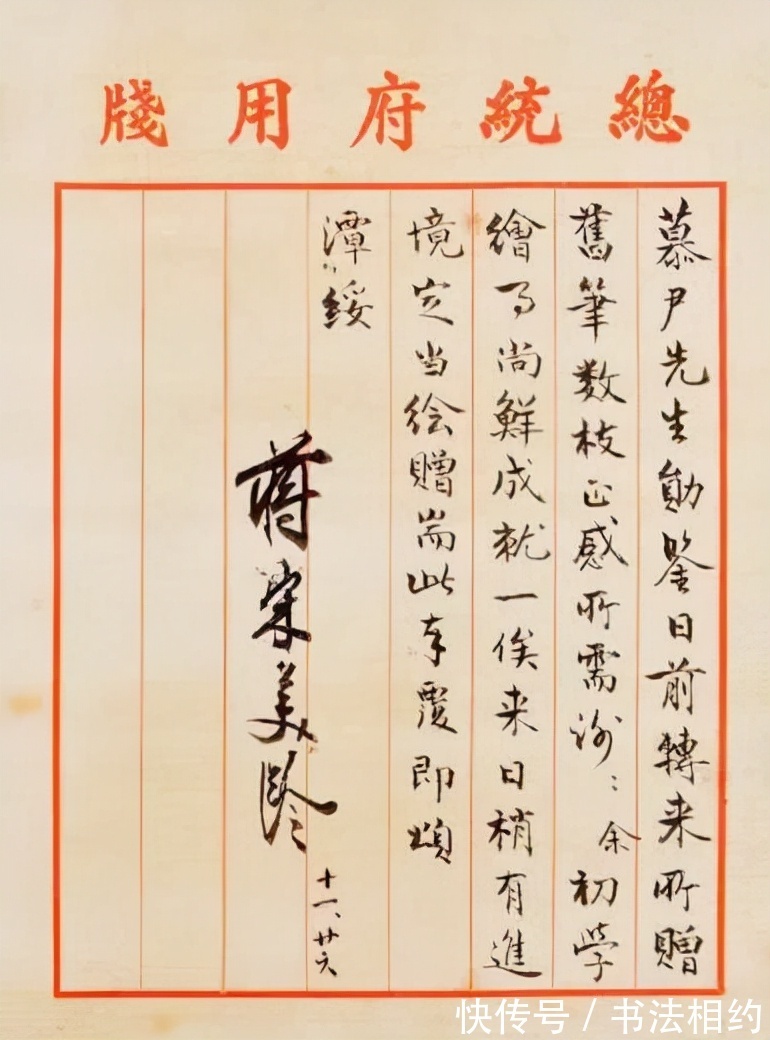 總統府用牋
慕尹先生勛鑒日前轉来所贈
舊筆数枝正感所需謝〻余初学
繪事尚鮮成就一俟来日稍有進
境定当绘贈耑此奉覆即頌
潭綏
蒋宋美齡
十一、廿六
快传号 / 书法相约